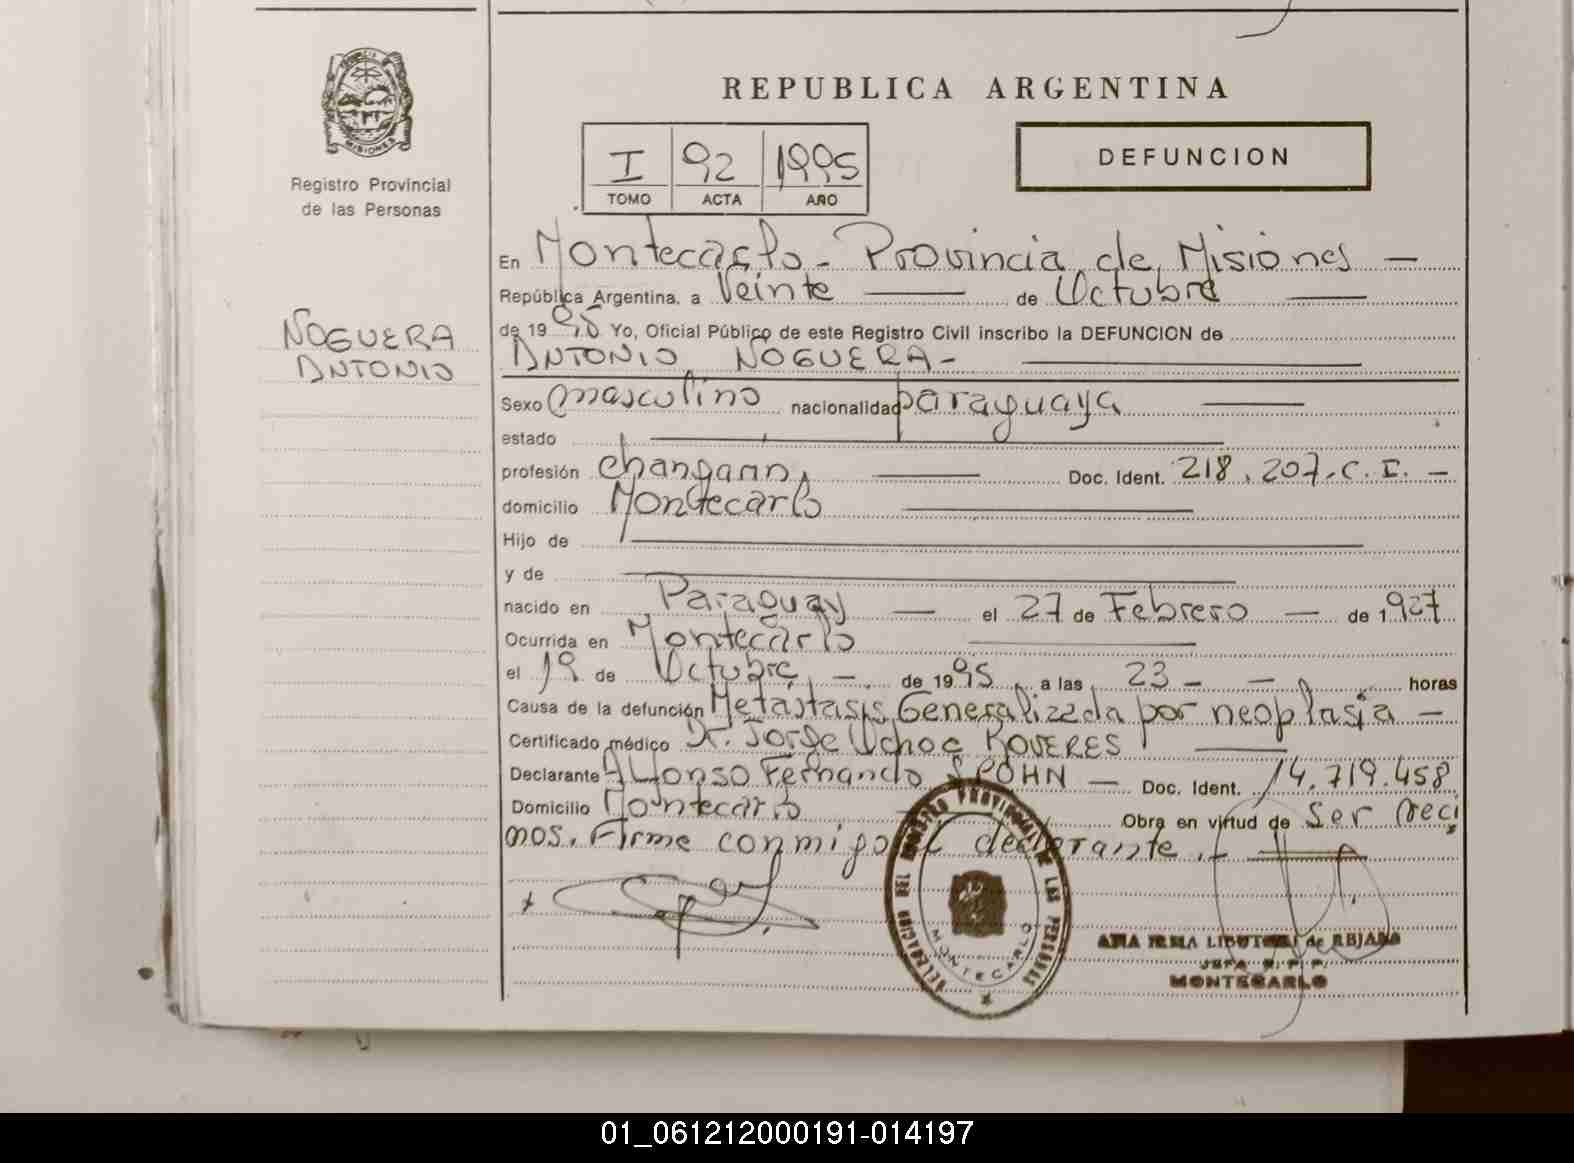 REPUBLICA ARGENTINA
PROVINCIA DE MISIONES
Registro Provincial
de las Personas
I 92 1995
TOMO ACTA AÑO
DEFUNCION
En Montecarlo - Provincia de Misiones —
República Argentina, a Veinte — de Octubre —
de 19 95 Yo, Oficial Público de este Registro Civil inscribo la DEFUNCION de
NOGUERA
ANTONIO
ANTONIO NOGUERA -
Sexo masculino nacionalidad paraguaya —
estado —
profesión changarin, — Doc. Ident. 218.207.C.I. -
domicilio Montecarlo —
Hijo de —
y de —
nacido en Paraguay — el 27 de Febrero — de 1927
Ocurrida en Montecarlo —
el 19 de Octubre - de 1995 a las 23 - - horas
Causa de la defunción Metástasis Generalizada por neoplasia -
Certificado médico Dr. Jorge Ochoe ROVERES —
Declarante Alfonso Fernando SPOHN — Doc. Ident. 14.719.458
Domicilio Montecarlo Obra en virtud de Ser veci
nos. Firme conmigo el declarante. -
DELEGACION DEL REGISTRO PROVINCIAL DE LAS PERSONAS
MONTECARLO
ANA IRMA de REJALA
JEFA R. P. P.
MONTECARLO
01_061212000191-014197